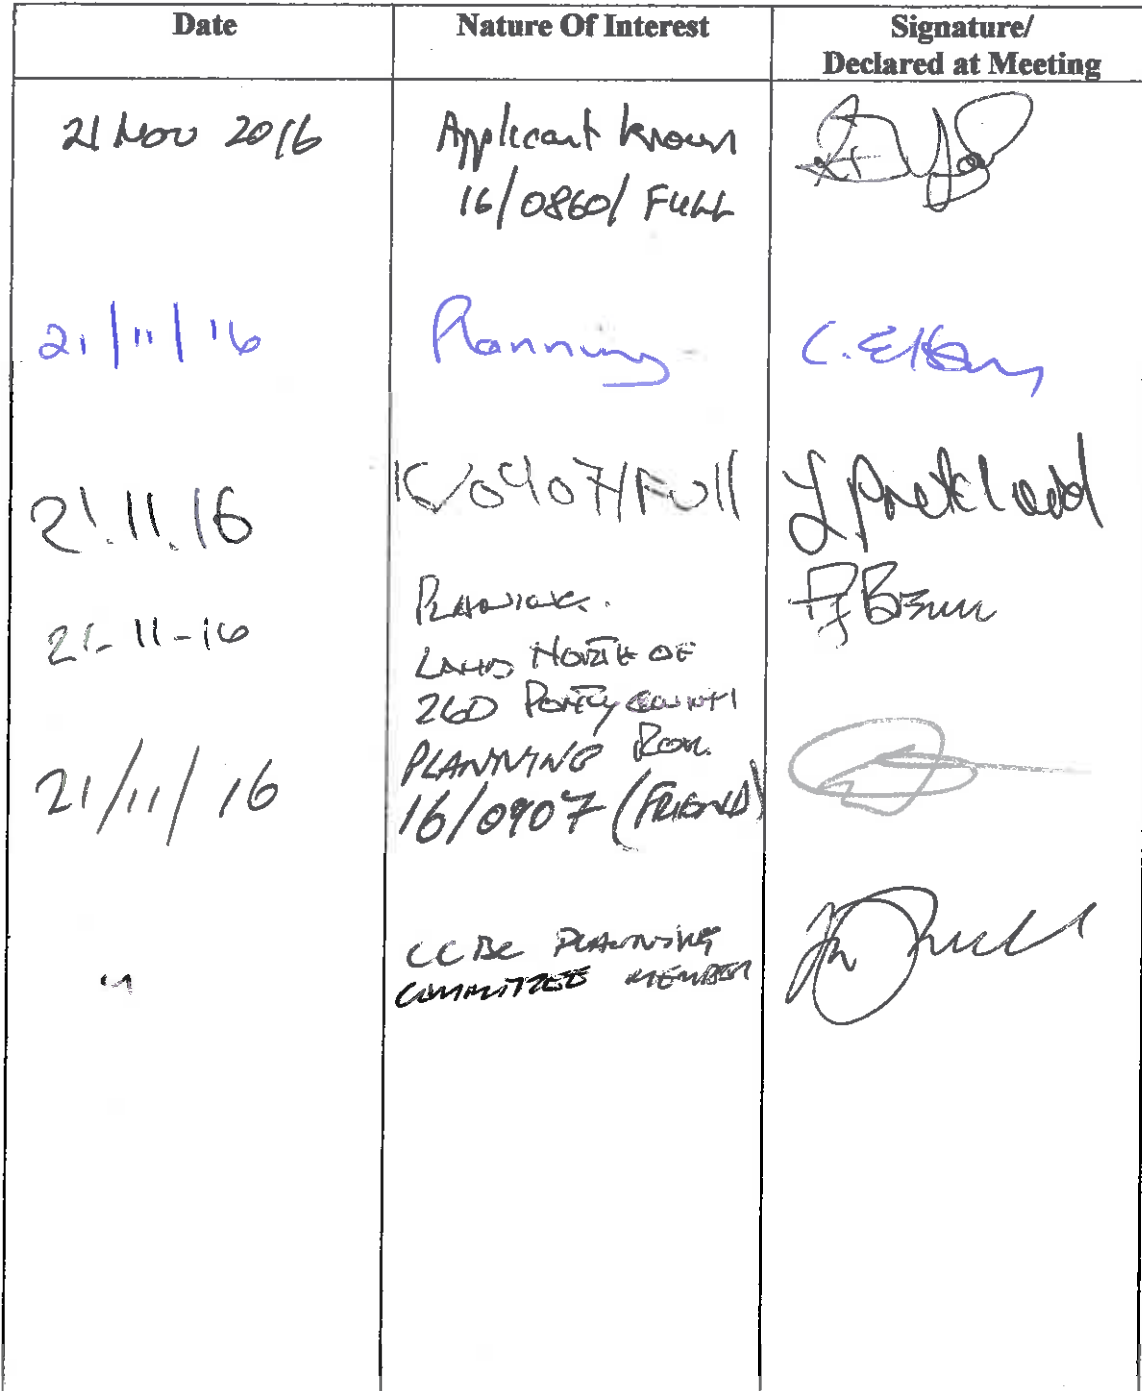 Date Nature Of Interest Signature/
Declared at Meeting
21 Nov 2016 Applicant known
16/0860/ FULL
21/11/16 Planning C. Elsbury
21.11.16 16/0907/Full
21-11-16 PLANNING.
LAND NORTH OF
260 PONTYGWINDY
ROAD.
21/11/16 PLANNING
16/0907 (FRIEND)
" CCBC PLANNING
COMMITTEE MEMBER